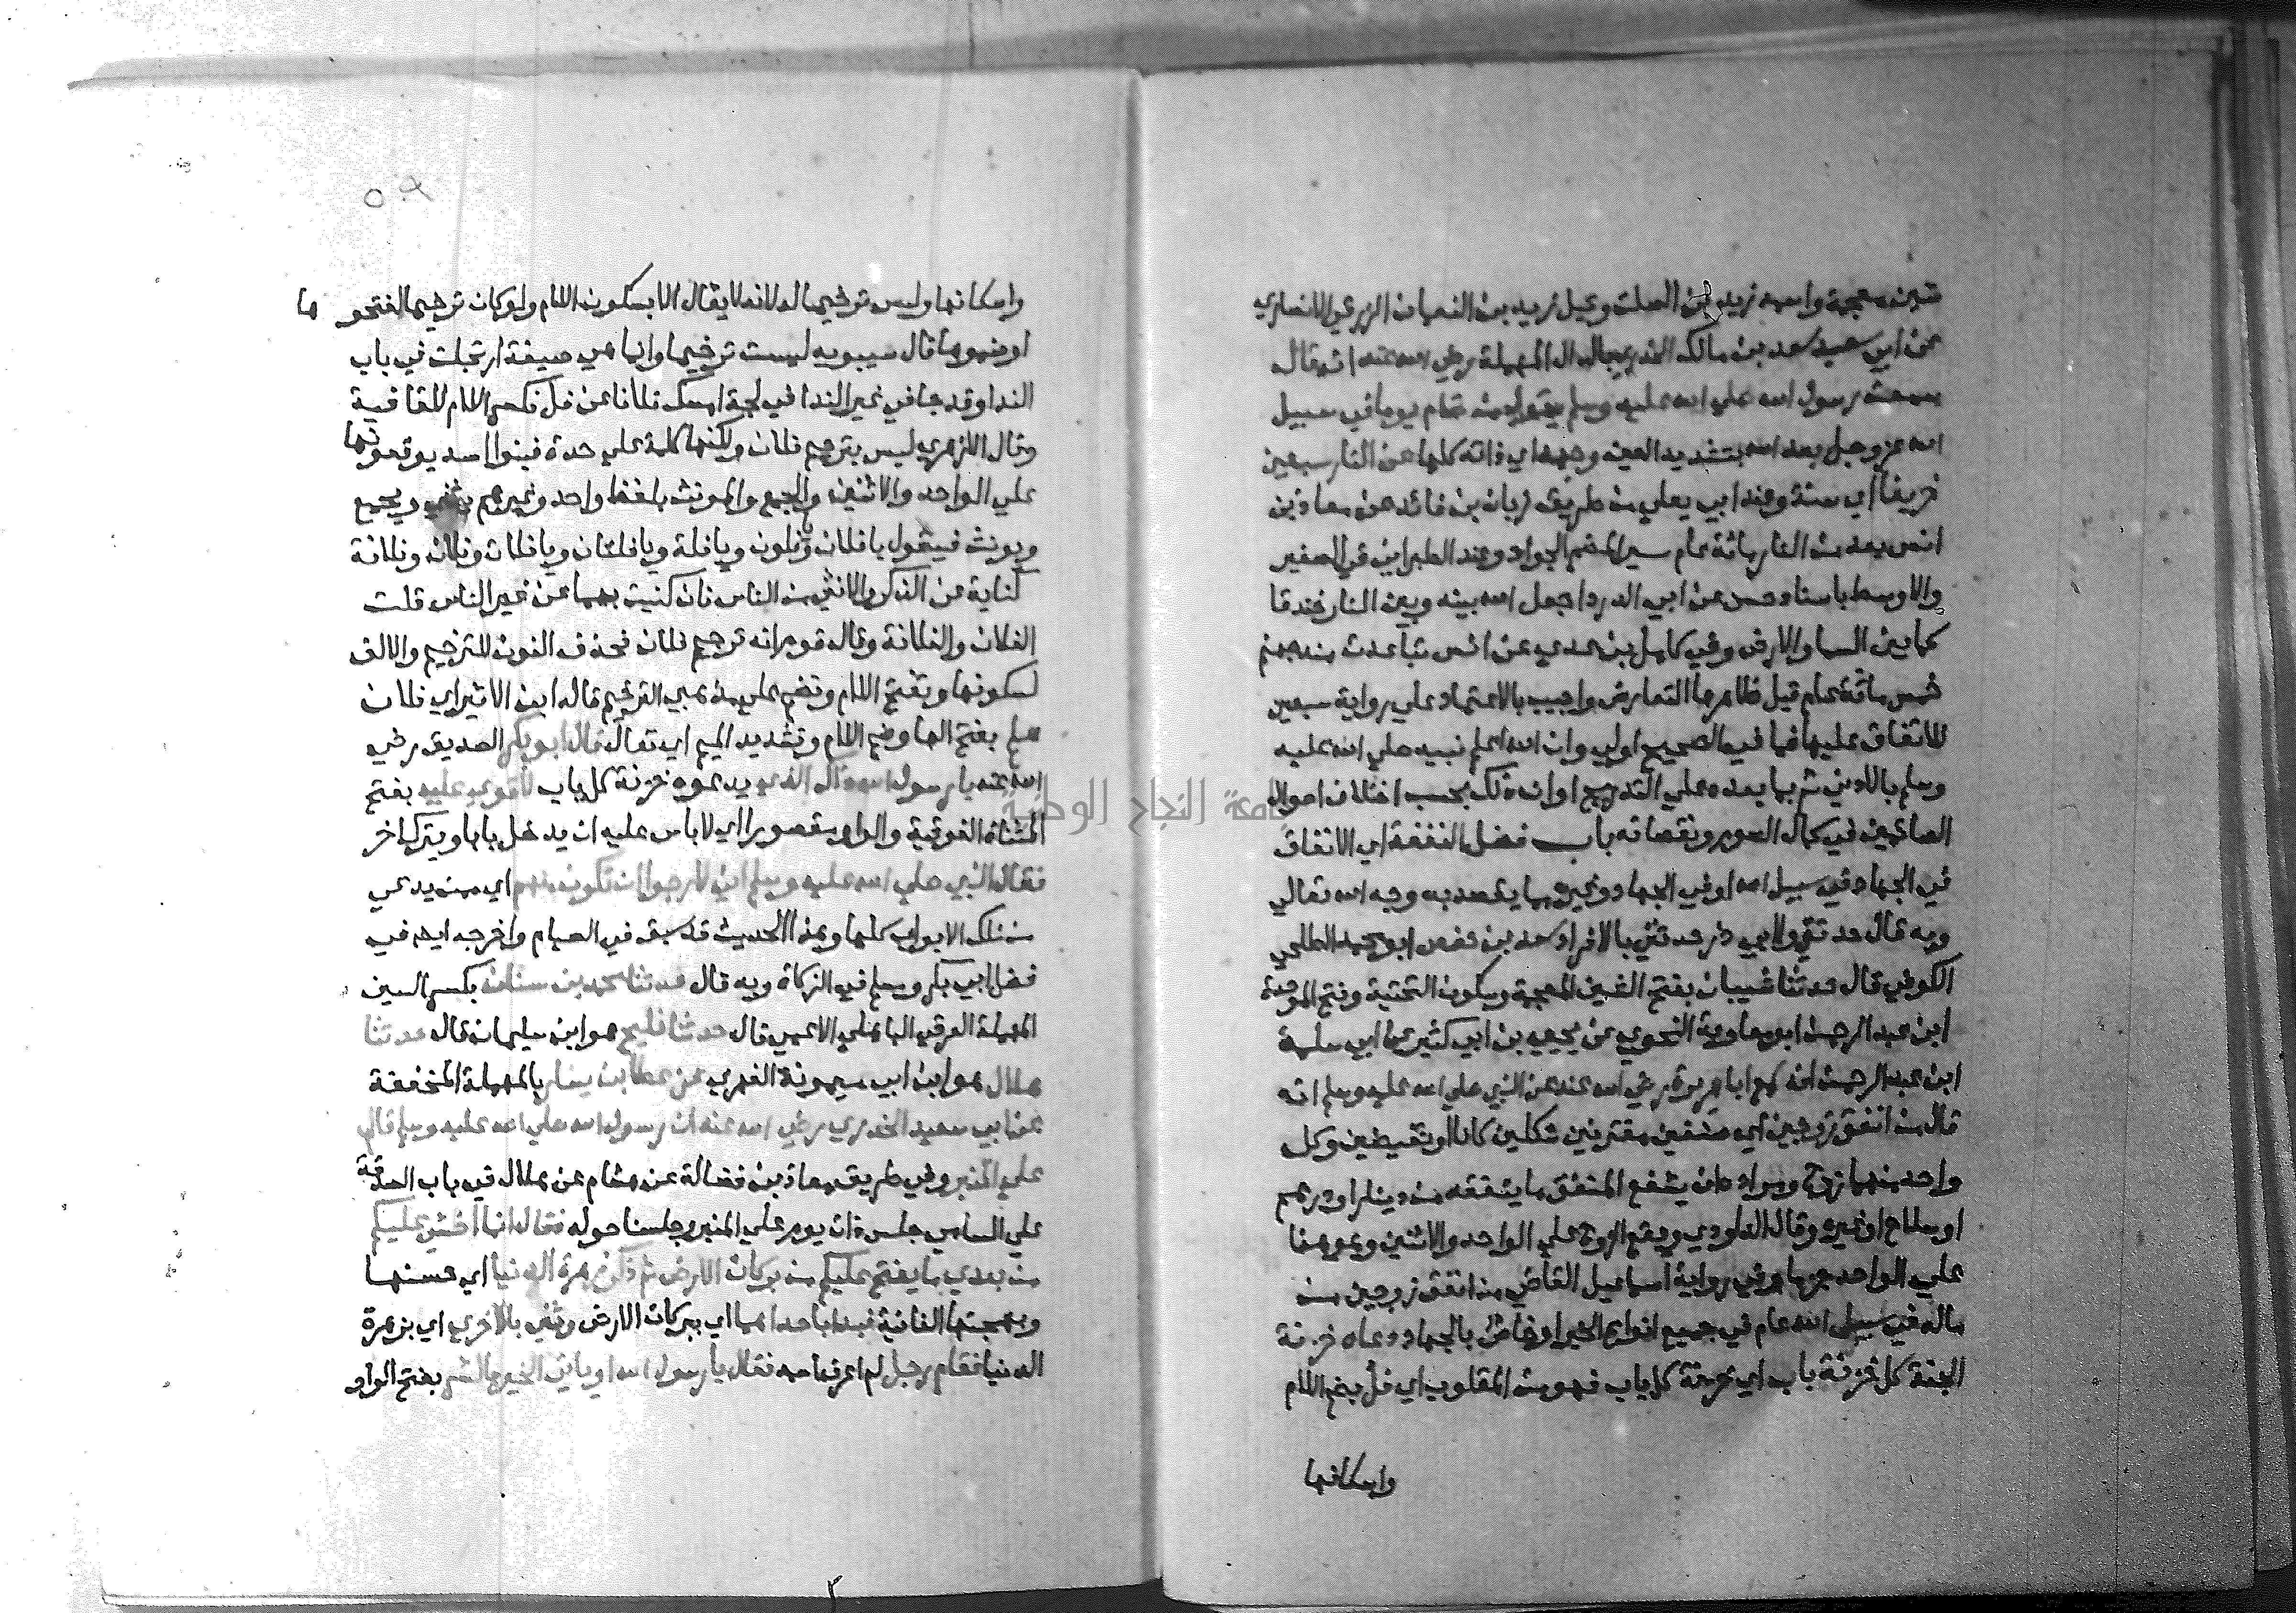 شين معجمة واسمه زيد بن الصلت وقيل زيد بن النعمان الزرقي الانصاري
عن ابي سعيد سعد بن مالك الخدري بالدال المهملة رضي الله عنه انه قال
سمعت رسول الله صلي الله عليه وسلم يقول من صام يوما في سبيل
الله عز وجل بعد الله بتشديد العين وجهه اي ذاته كلها عن النار سبعين
خريفا اي سنة وعند ابي يعلي من طريق زبان بن فائد عن معاذ بن
انس بعد من النار مائة عام سير المضمر الجواد وعند الطبراني في الصغير
والاوسط باسناد حسن عن ابي الدردا جعل الله بينه وبين النار خندقا
كما بين السما والارض وفي كامل بن عدي عن انس تباعدت منه جهنم
خمس مائة عام قيل ظاهرها التعارض واجيب بالاعتماد علي رواية سبعين
للاتفاق عليها فما في الصحيح اولي وان الله اعلم نبيه صلي الله عليه
وسلم بالادني ثم بما بعده علي التدريج او ان ذلك بحسب اختلاف احوال
الصائمين في كمال الصوم ونقصانه باب فضل النفقة اي الانفاق
في الجهاد في سبيل الله او في الجهاد وغيره مما يقصد به وجه الله تعالي
وبه قال حدثني ولابي ذر حدثني بالافراد سعد بن حفص ابو محمد الطلحي
الكوفي قال حدثنا شيبان بفتح الشين المعجمة وسكون التحتية وفتح الموحدة
ابن عبد الرحمن ابو معاوية النحوي عن يحيي بن ابي كثير عن ابي سلمة
ابن عبد الرحمن انه سمع ابا هريرة رضي الله عنه عن النبي صلي الله عليه وسلم انه
قال من انفق زوجين اي صنفين مقترنين شكلين كانا او نقيضين وكل
واحد منهما زوج ومراده ان يشفع المنفق ما ينفقه من دينار او درهم
او سلاح او غيره وقال الداودي ويقع الزوج علي الواحد والاثنين وهو هنا
علي الواحد جزما وفي رواية اسماعيل القاضي من انفق زوجين من
ماله في سبيل الله عام في جميع انواع الخير او خاص بالجهاد دعاه خزنة
الجنة كل خزنة باب اي خزنة كل باب فهو من المقلوب اي فل بضم اللام
واسكانها
٥٩
واسكانها وليس ترخيما له لانه لا يقال الا بسكون اللام ولو كان ترخيما لفتحوها
او ضموها قال سيبويه ليست ترخيما وانما هي صيغة ارتجلت في باب
الندا وقد جا في غير الندا في لجة امسك فلانا عن فل فكسر اللام للقافية
وقال الازهري ليس بترخيم فلان ولكنها كلمة علي حدة فبنوا اسد يوقعونها
علي الواحد والاثنين والجمع والمونث بلفظ واحد وغيرهم يثني ويجمع
ويونث فيقول يا فلان وفلون ويا فلة ويا فلتان ويا فلات وفلان وفلانة
كناية عن الذكر والانثي من الناس فان كنيت بهما عن غير الناس قلت
الفلان والفلانة وقال قوم انه ترخيم فلان فحذف النون للترخيم والالف
لسكونها وتفتح اللام وتضم علي مذهبي الترخيم قاله ابن الاثير اي فلان
هلم بفتح الها وضم اللام وتشديد الميم اي تعال قال ابو بكر الصديق رضي
الله عنه يا رسول الله ذاك الذي يدعوه خزنة كل باب لا توي عليه بفتح
المثناة الفوقية والواو مقصورا اي لا باس عليه ان يدخل بابا ويترك اخر
فقال النبي صلي الله عليه وسلم اني لارجوا ان تكون منهم اي ممن يدعي
من تلك الابواب كلها وهذا الحديث قد سبق في الصيام واخرجه ايضا في
فضل ابي بكر ومسلم في الزكاة وبه قال حدثنا محمد بن سنان بكسر السين
المهملة العوقي الباهلي الاعمي قال حدثنا فليح هو ابن سليمان قال حدثنا
هلال هو ابن ابي ميمونة الفهري عن عطا بن يسار بالمهملة المخففة
عن ابي سعيد الخدري رضي الله عنه ان رسول الله صلي الله عليه وسلم قال
علي المنبر وفي طريق معاذ بن فضالة عن هشام عن هلال في باب الصدقة
علي اليتامي جلس ذات يوم علي المنبر وجلسنا حوله فقال انما اخشي عليكم
من بعدي ما يفتح عليكم من بركات الارض ثم ذكر زهرة الدنيا اي حسنها
وبهجتها الفانية فبدا باحداهما اي ببركات الارض وثني بالاخري اي بزهرة
الدنيا فقام رجل لم اعرف اسمه فقال يا رسول الله اوياتي الخير بالشر بفتح الواو
جامعة النجاح الوطنية